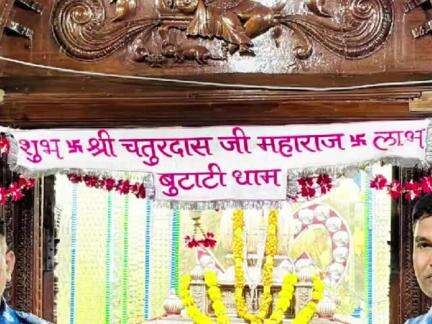 शुभ 卐 श्री चतुरदास जी महाराज 卐 लाभ
बुटाटी धाम